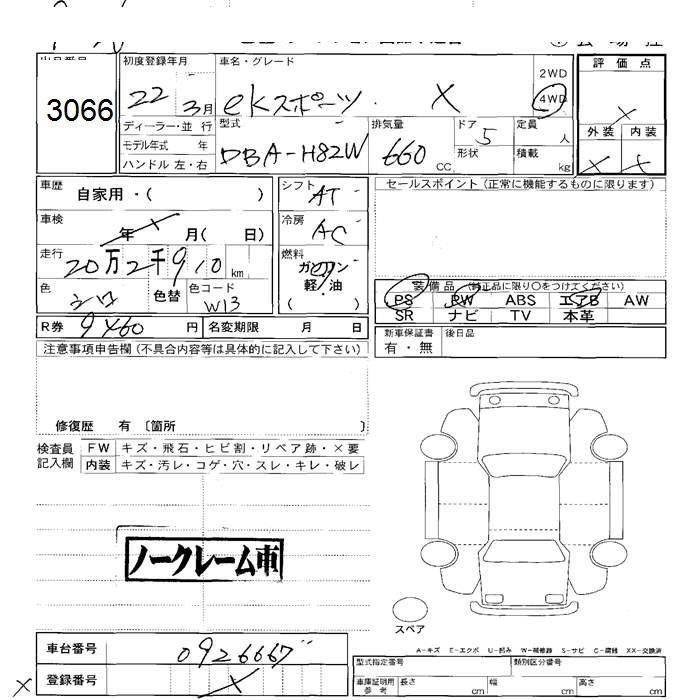 初度登録年月 車名・グレード 評価点
3066 22 3月 eKスポーツ X 2WD 4WD
外装 内装
ディーラー・並行 型式 排気量 ドア 定員
モデル年式 年 DBA-H82W 660 CC 5 人
ハンドル 左・右 形状 積載 kg
車歴 自家用・( ) シフト AT セールスポイント (正常に機能するものに限ります)
車検 年 月( 日) 冷房 AC
走行 20万2千910 km 燃料 ガソリン
軽/油
( )
色 シロ 色替 色コード W13
装備品 (純正品に限り○をつけてください)
PS PW ABS エアB AW
SR ナビ TV 本革
R券 9460 円 名変期限 月 日
新車保証書 後日品
有・無
注意事項申告欄 (不具合内容等は具体的に記入して下さい)
修復歴 有 〔箇所 〕
検査員 FW キズ・飛石・ヒビ割・リペア跡・×要
記入欄 内装 キズ・汚レ・コゲ・穴・スレ・キレ・破レ
ノークレーム車
スペア
A-キズ E-エクボ U-凹み W-補修跡 S-サビ C-腐蝕 XX-交換済
車台番号 0926667
登録番号 X
型式指定番号 類別区分番号
車庫証明用 参考 長さ cm 幅 cm 高さ cm